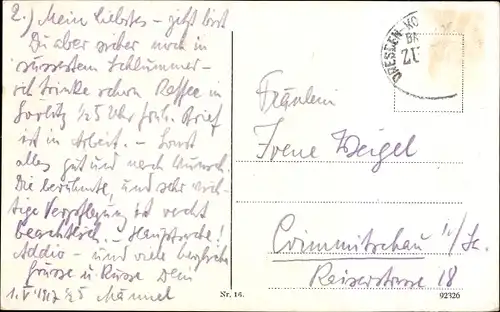 2.) Mein Liebstes - jetzt bist
Du aber sicher noch in
süssestem Schlummer -
ich trinke schon Kaffee in
Görlitz 1/2 5 Uhr früh. Brief
ist in Arbeit. - Sonst
alles gut und nach Wunsch.
Die berühmte, und sehr wich-
tige Verpflegung ist recht
beachtlich. - Hauptsache!
Addio - und viele herzliche
Grüsse u Küsse Dein
1. V 1917 1/2 5 Männel
DRESDEN-
ZU
Fräulein
Irene Weigel
Crimmitschau i/Sa.
Reiserstrasse 18
Nr. 16.
92326